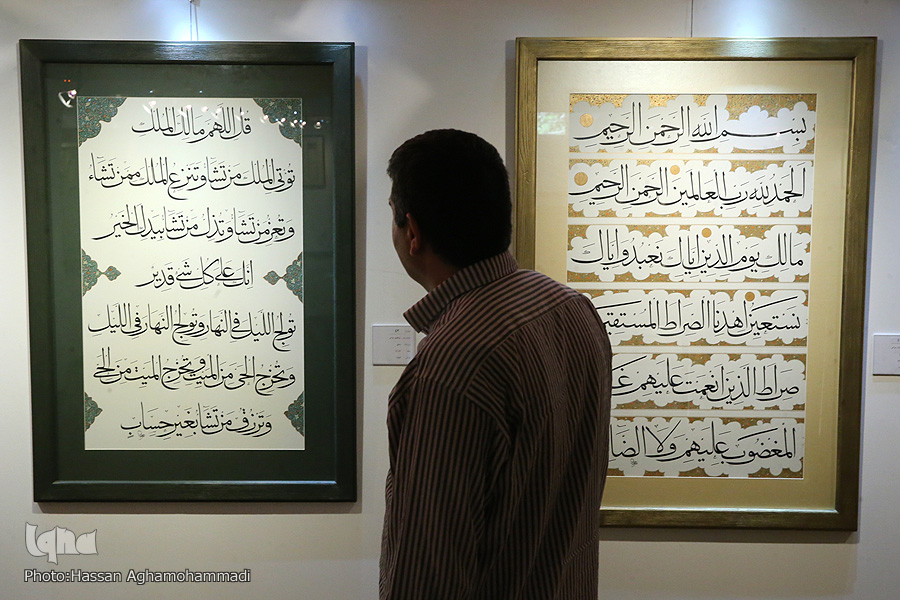 قل اللهم مالك الملك
توتى الملك من تشا و تنزع الملك ممن تشاء
و تعز من تشا و تذل من تشا بيدك الخير
انك على كل شى قدير
تولج الليل فى النهار و تولج النهار فى الليل
و تخرج الحى من الميت و تخرج الميت من الحى
و ترزق من تشا بغير حساب
بسم الله الرحمن الرحيم
الحمد لله رب العالمين الرحمن الرحيم
مالك يوم الدين اياك نعبد و اياك
نستعين اهدنا الصراط المستقي
صراط الذين انعمت عليهم غ
المغضوب عليهم ولا الضا
iqna
Photo:Hassan Aghamohammadi